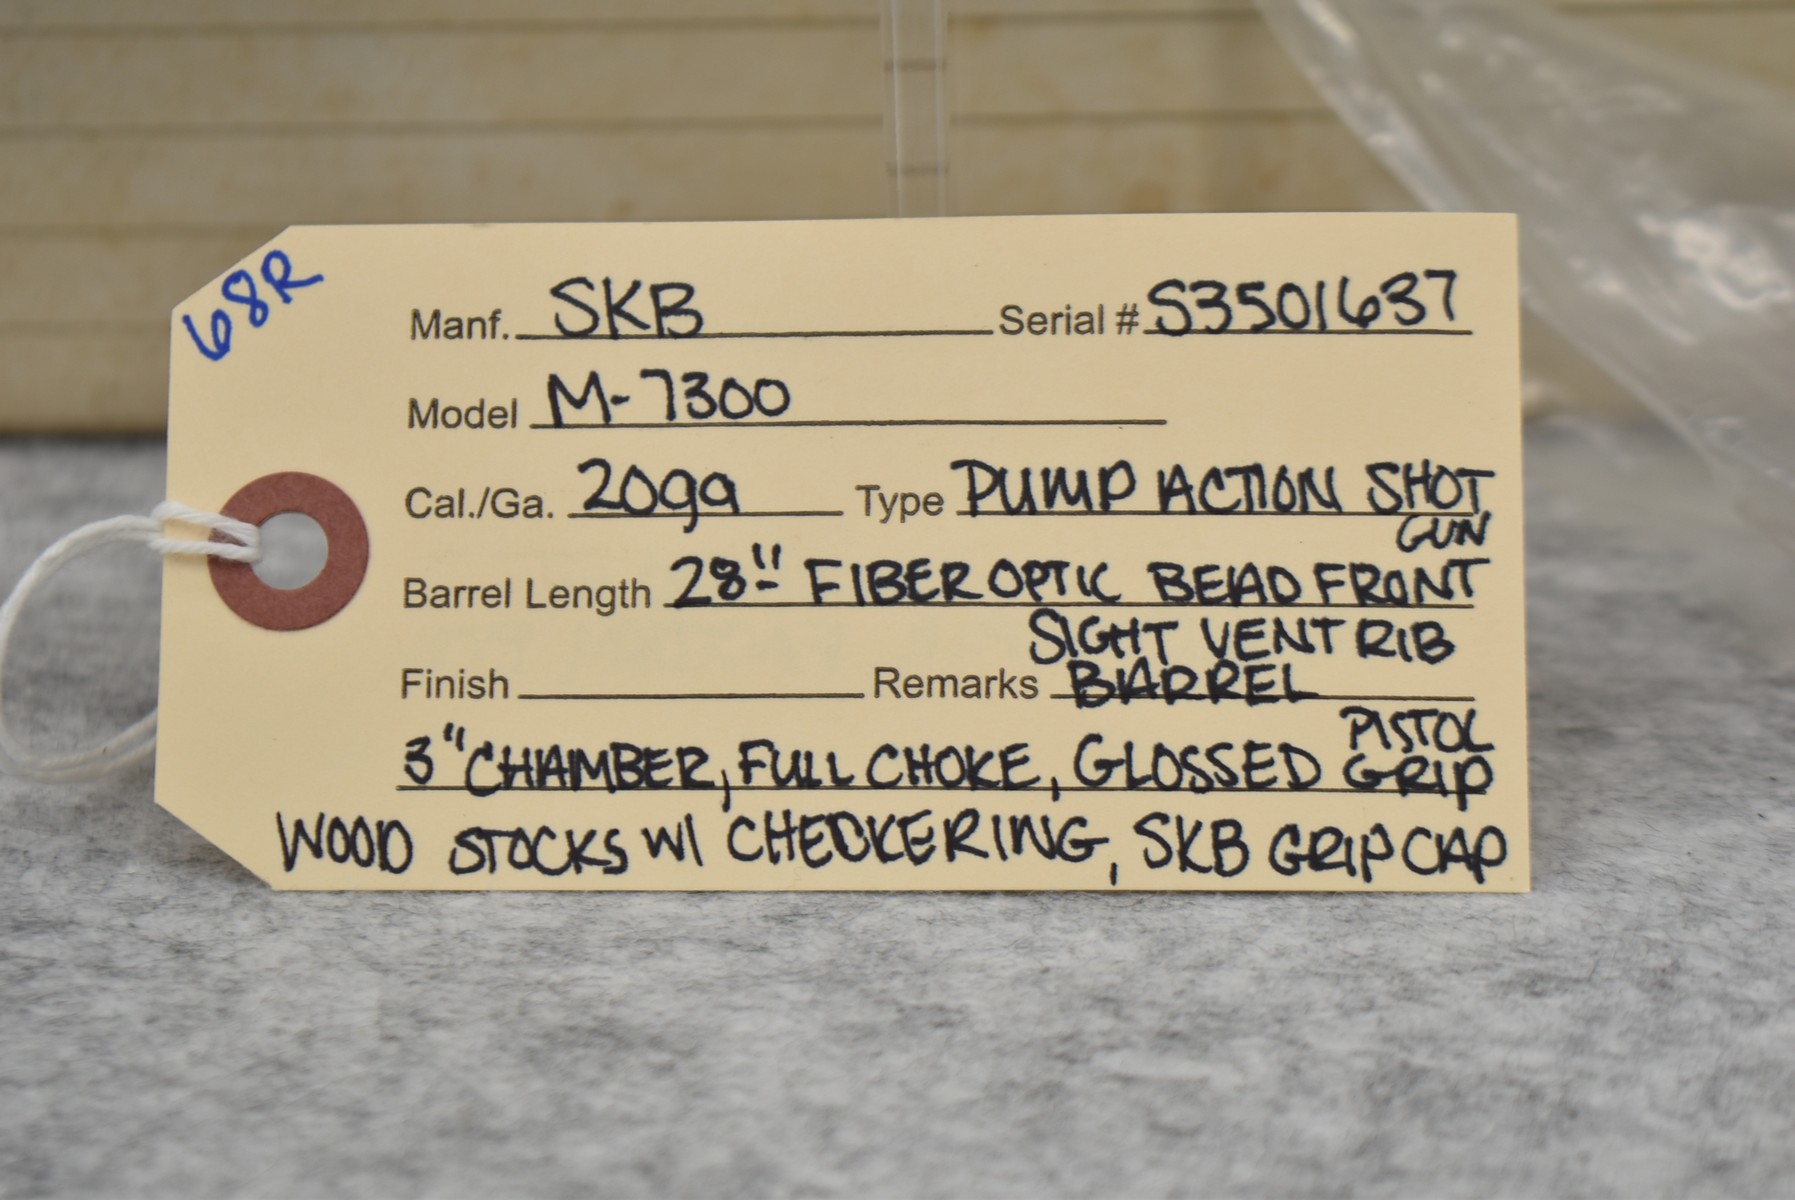 68R
Manf. SKB Serial # S3501637
Model M-7300
Cal./Ga. 20ga Type PUMP ACTION SHOT
GUN
Barrel Length 28" FIBER OPTIC BEAD FRONT
SIGHT VENT RIB
Finish Remarks BARREL
PISTOL
3" CHAMBER, FULL CHOKE, GLOSSED GRIP
WOOD STOCKS W/ CHECKERING, SKB GRIP CAP